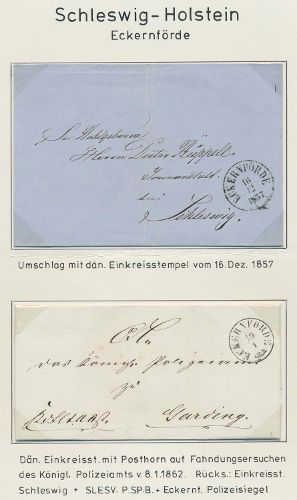 Schleswig-Holstein
Eckernförde
Sr. Wohlgeboren
Herrn Doctor Rüppell
Irrenanstalt
bei
Schleswig.
ECKERNFÖRDE
16
12
1857
Umschlag mit dän. Einkreisstempel vom 16. Dez. 1857
ECKERNFÖRDE
das Königl. Polizeiamt
zu
Garding.
Dän. Einkreisst. mit Posthorn auf Fahndungsersuchen
des Königl. Polizeiamts v. 8.1.1862. Rücks.: Einkreisst.
Schleswig + SLESV. P.SP.B. + Eckernf. Polizeisiegel